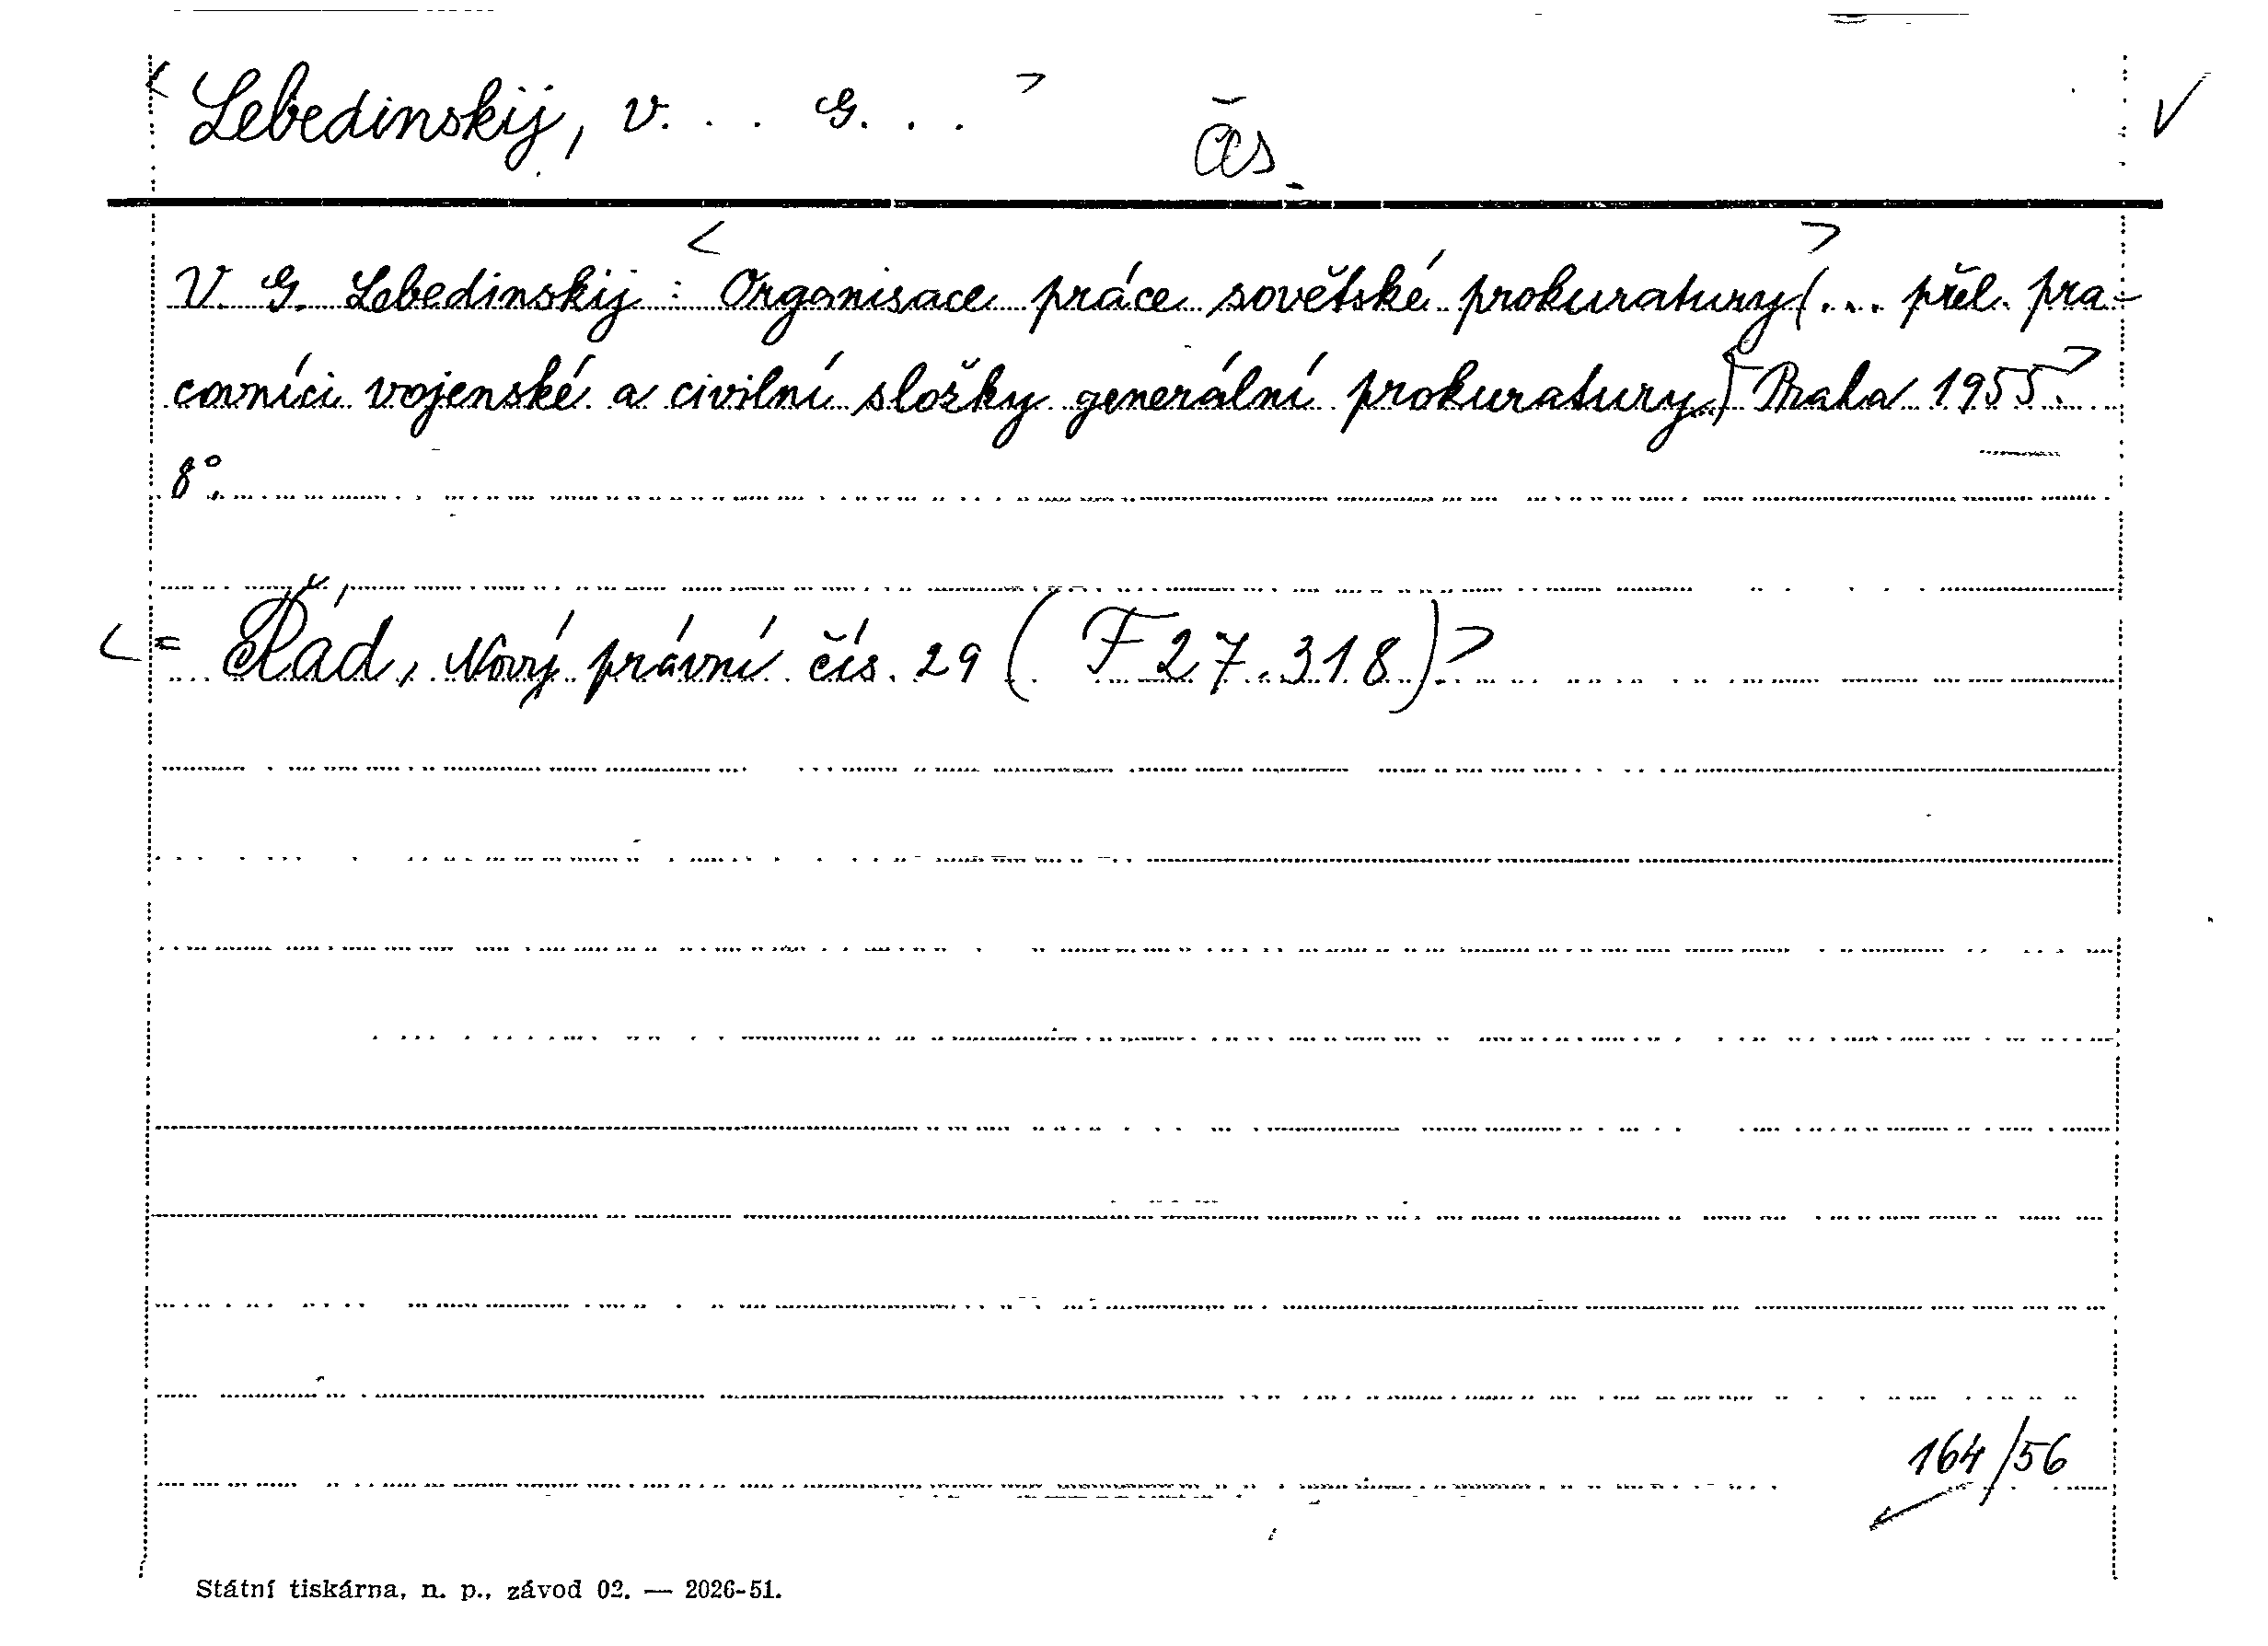 < Lebedinskij, V. . . G. . . > Čes. √
V. G. Lebedinskij : < Organisace práce sovětské prokuratury > (... přel. pra-
covníci vojenské a civilní složky generální prokuratury.) < Praha 1955. >
8°.
< = Řád, Nový právní čís. 29 ( F 27.318 ). >
164/56
Státní tiskárna, n. p., závod 02. — 2026-51.